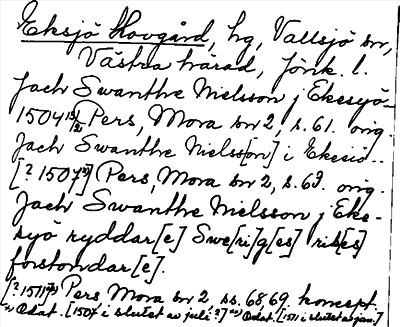 Eksjö Hovgård, hg, Vallsjö sn,
Västra härad, Jönk. l.
Jach Swanthe Nielsson j Ekesyö
1504 13/2 Pers, Mora nr 2, s. 61. orig.
Jach Swanthe Nielsso[n] i Ekesiö..
[? 1507] Pers, Mora nr 2, s. 63. orig.
Jach Swanthe Nielsson j Eke-
syö ryddar[e] Swe[ri]g[es] rik[es]
forstondar[e].
[? 1511] Pers Mora nr 2, ss. 68, 69. koncept.
Odat. [1507 i slutet av juli?] Odat. [1511 i slutet av jan.]